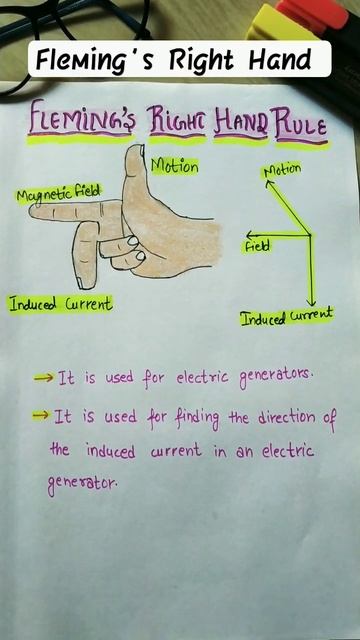 Fleming's Right Hand
FLEMING'S RIGHT HAND RULE
Motion
Magnetic field
Induced Current
Motion
Field
Induced current
→ It is used for electric generators.
→ It is used for finding the direction of
the induced current in an electric
generator.